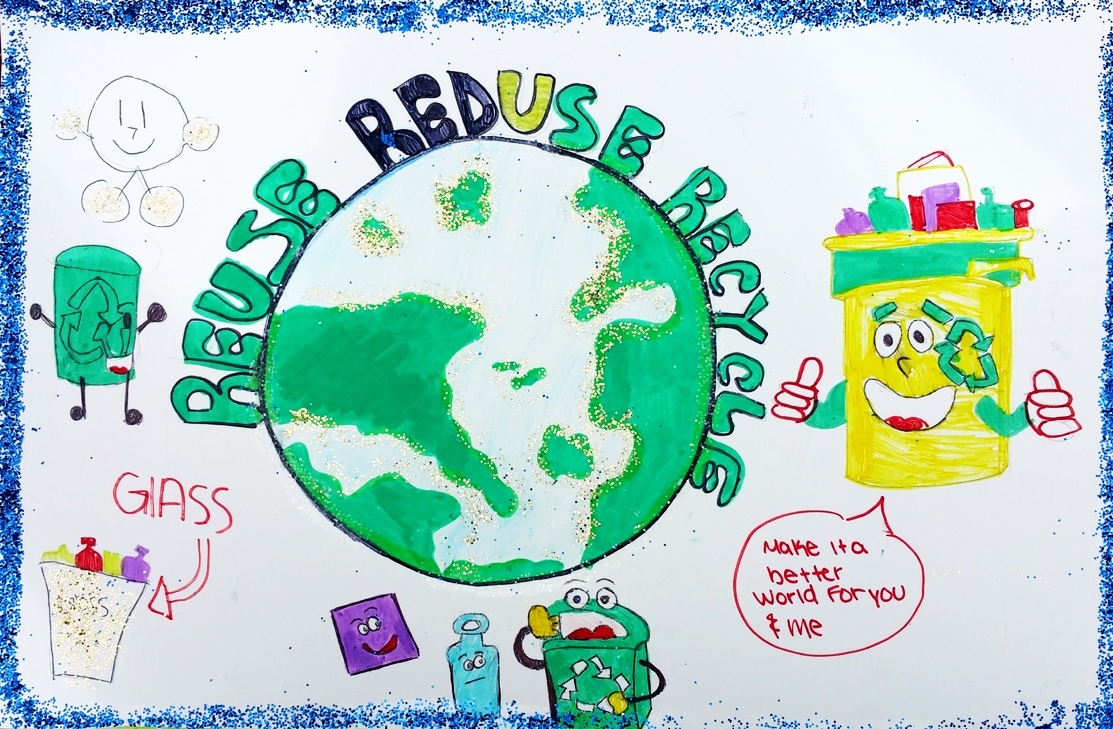 REUSE REDUSE RECYCLE
GlASS
Make it a
better
world For you
& Me